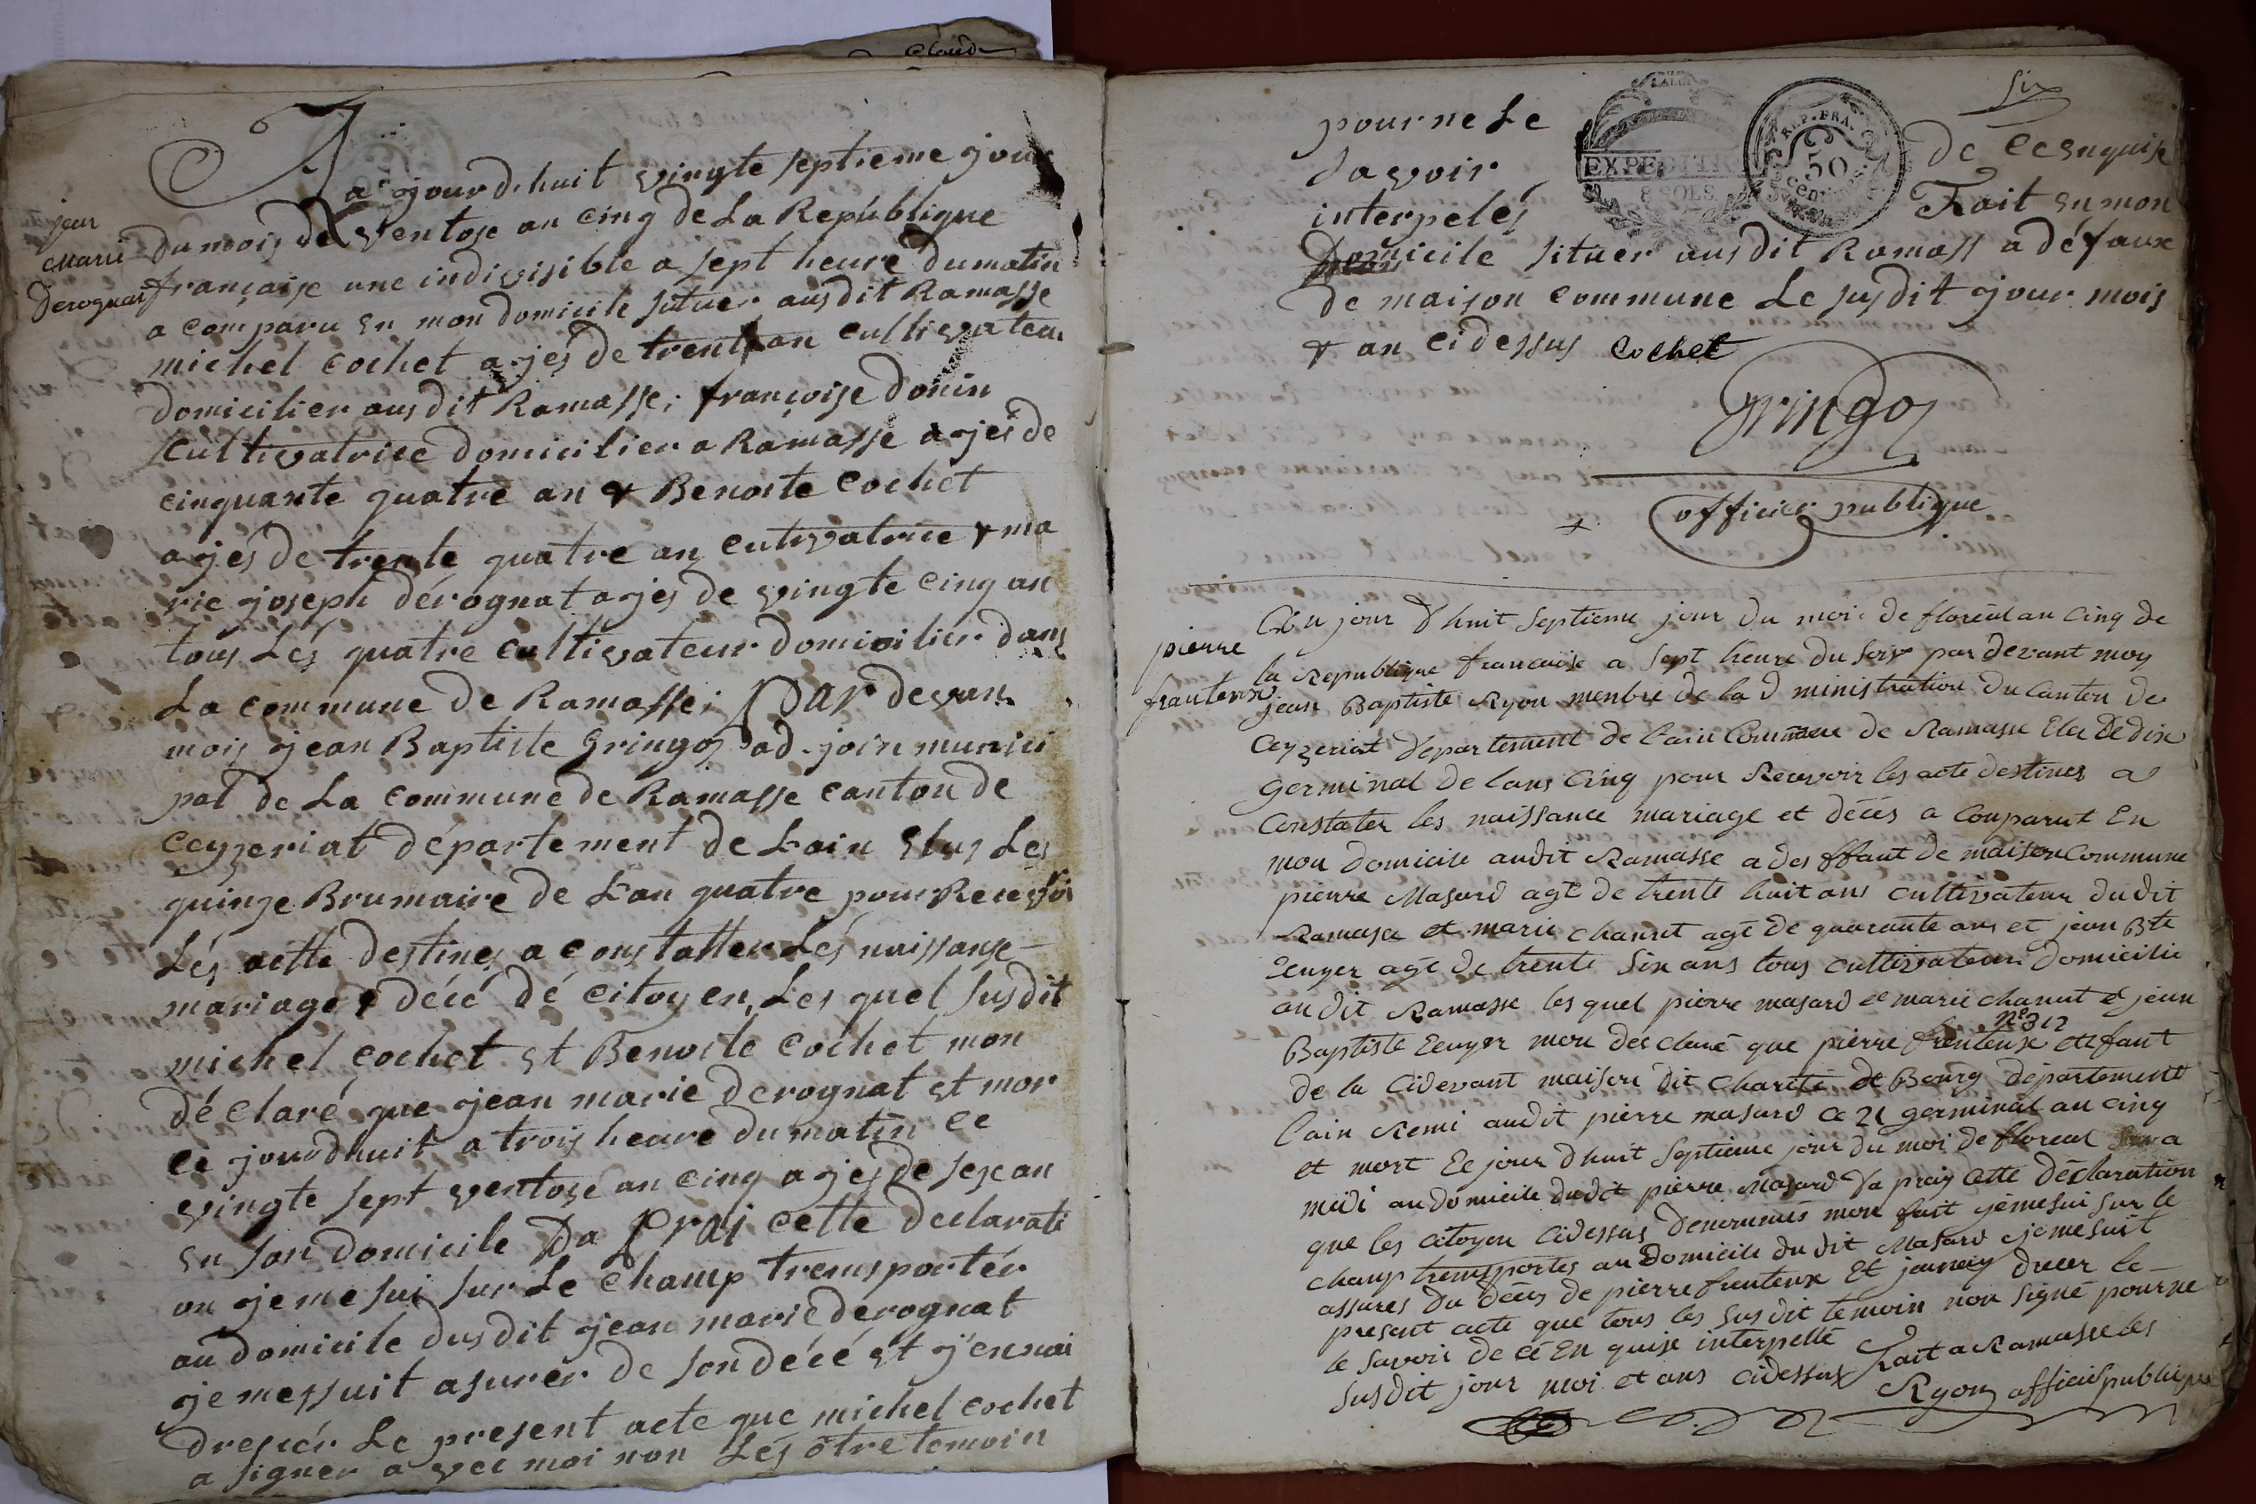 Claude
jean
marie
Derognat
Aojourdhuit vingte septieme jour
Du mois de ventose an cinq de La Republique
française une indivisible a sept heure Dumatin
a comparu en mon domicile situer ausdit Ramasse
michel cochet ajés de trent an cultivateur
domicilier ausdit Ramasse; françoise donin
cultivatrice domicilier a Ramasse ajés de
cinquante quatre an & Benoite cochet
ajés de trente quatre an cutivatrice & ma
rie joseph dérognat ajés de vingte cinq an
tous Lés quatre cultivateur domicilier dans
La commune de Ramasse; Par devan
mois jean Baptiste Gringoz ad-join munici
pal de La commune de Ramasse canton de
ceyzeriat département de Lain Elus Les
quinze Brumaire de Lan quatre pour Recevoir
Lés actte destines a constatter Lés naissanse
mariage & décé dé citoyen, Les quel susdit
michel cochet et Benoite cochet mon
déclaré que jean marie derognat et mor
ce jourdhuit a trois heure du matin ce
vingte sept ventose an cinq ajés de sese an
en son domicile Da prai cette declarati
on je me sui sur Le champ tremsportér
au domicile dusdit jean marie derognat
je messuit asurér de son décé et j'ennai
dresér Le present acte que michel cochet
a signer avec moi non Lés ôtre temoin
six
pour ne Le
savoir
interpelés
EXPEDITION
8 SOLS
REP. FRA.
50
centimes
de ce enquise
Fait en mon
Domicile situer ausdit Ramass a défaux
de maison commune Le susdit jour mois
& an cidessus cochet
Gringoz
officier publique
pierre
frauteux
Aujour dhuit septieme jour du moi de floreal an cinq de
la Republique francaise a sept heure du soir par devant moy
jean Baptiste Ryon menbre de lad ministration du Canton de
Ceyzeriat departement de lain Commune de Ramasse Elu le dix
germinal de lans cinq pour Recevoir les acte destines a
Constater les naissance mariage et décés a Comparut En
mon domicile audit Ramasse a des ffaut de maison Commune
pierre Masard agé de trente huit ans cultivateur dudit
Ramasse et marie chanut agé de quarante ans et jean Bte
Ecuyer agé de trente six ans tous cultivateur domicilie
audit Ramasse les quel pierre masard et marie chanut et jean
N° 312
Baptiste Ecuyer mon des claré que pierre frenteux enfant
de la cidevant maison dit charité de Bourg departement
lain Remi audit pierre masard ce 21 germinal an cinq
et mort Ce jour dhuit septieme jour du moi de floreal a
midi au domicile dudit pierre Masard Da praiy cette déclaration
que les citoyen cidessus denommés mon fait jemesui sur le
champ tremsportes au domicile du dit Masard jemesuit
assures du décés de pierre frenteux Et jeanaiy dreer le
present acte que tous les susdit temoin non signé pourne
le savoir de cé En quise interpellé Fait a Ramasse les
susdit jour moi et ans cidessus Ryon officié publique